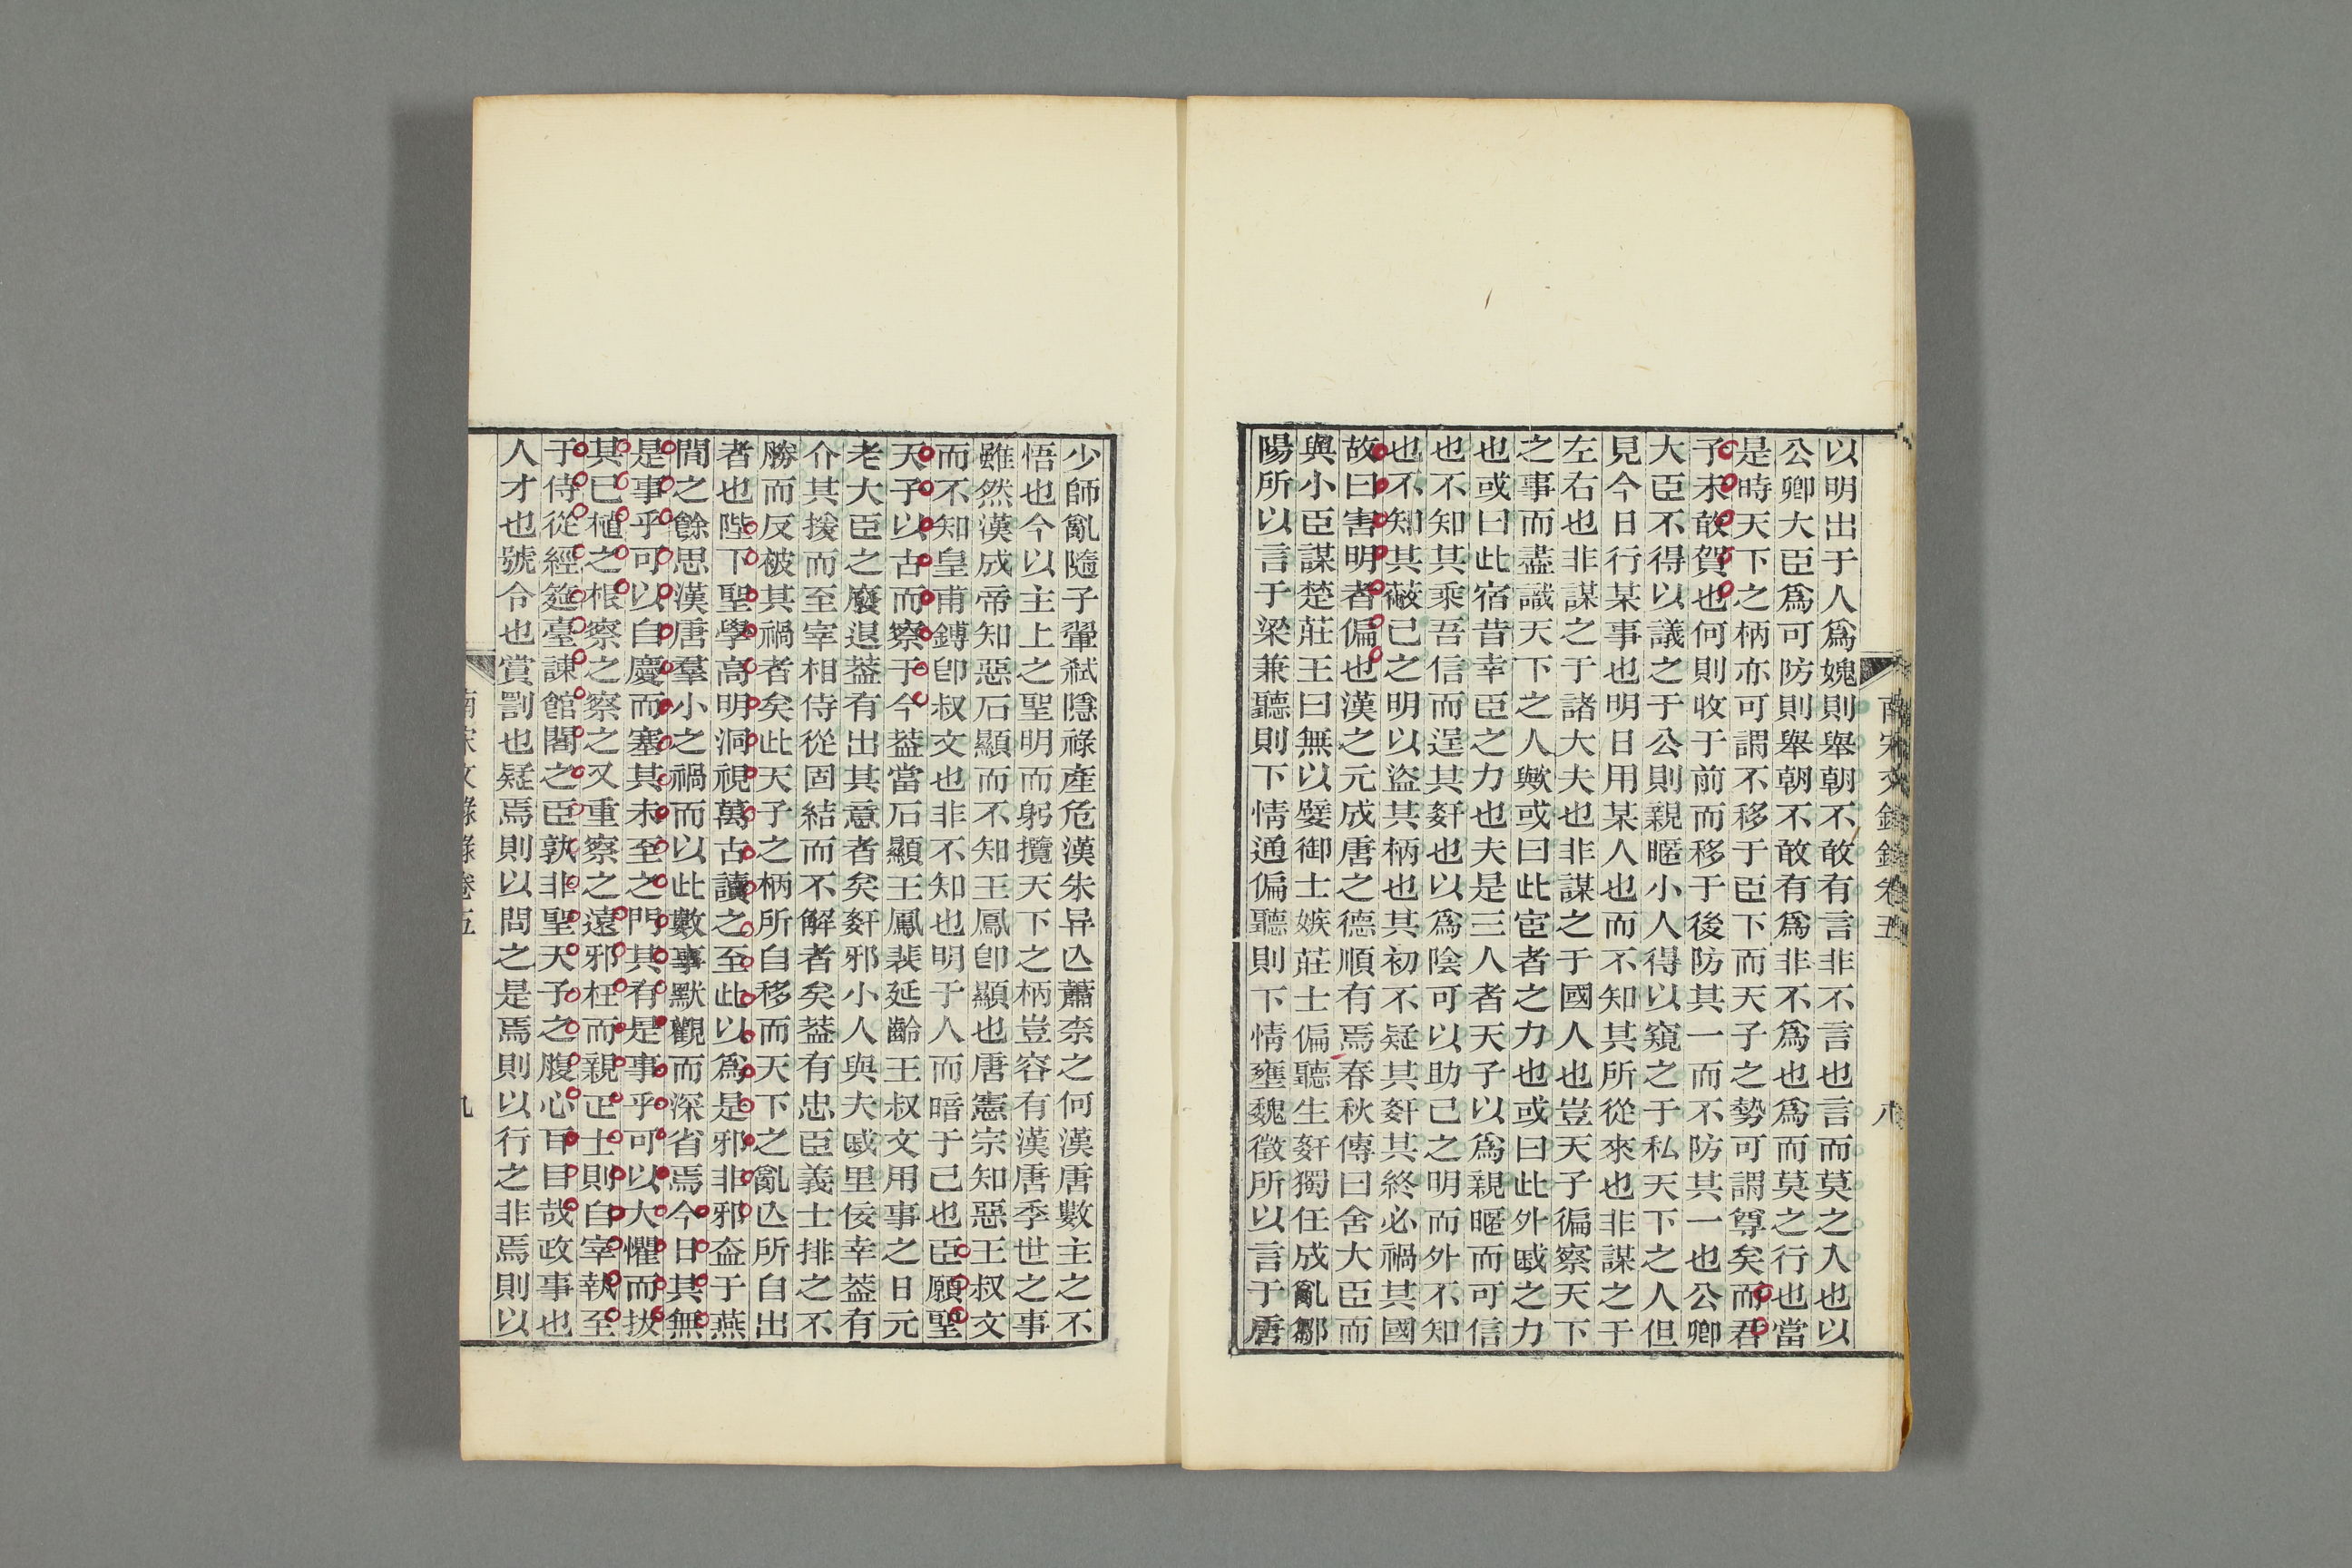 以明出于人爲媿則舉朝不敢有言非不言也言而莫之入也以
公卿大臣爲可防則舉朝不敢有爲非不爲也爲而莫之行也當
是時天下之柄亦可謂不移于臣下而天子之勢可謂尊矣而君
子未敢賀也何則收于前而移于後防其一而不防其一也公卿
大臣不得以議之于公則親暱小人得以窺之于私天下之人但
見今日行某事也明日用某人也而不知其所從來也非謀之于
左右也非謀之于諸大夫也非謀之于國人也豈天子徧察天下
之事而盡識天下之人歟或曰此宦者之力也或曰此外戚之力
也或曰此宿昔幸臣之力也夫是三人者天子以爲親暱而可信
也不知其乘吾信而逞其姧也以爲陰可以助己之明而外不知
也不知其蔽己之明以盜其柄也其初不疑其姧其終必禍其國
故曰害明者偏也漢之元成唐之德順有焉春秋傳曰舍大臣而
與小臣謀楚莊王曰無以嬖御士嫉莊士偏聽生姧獨任成亂鄒
陽所以言于梁兼聽則下情通偏聽則下情壅魏徵所以言于唐
南宋文錄錄卷五
八
少師亂隨子翬弒隱祿產危漢朱异亾蕭柰之何漢唐數主之不
悟也今以主上之聖明而躬攬天下之柄豈容有漢唐季世之事
雖然漢成帝知惡石顯而不知王鳳卽顯也唐憲宗知惡王叔文
而不知皇甫鎛卽叔文也非不知也明于人而暗于己也臣願聖
天子以古而察于今葢當石顯王鳳裴延齡王叔文用事之日元
老大臣之廢退葢有出其意者矣姧邪小人與夫戚里佞幸葢有
介其援而至宰相侍從固結而不解者矣葢有忠臣義士排之不
勝而反被其禍者矣此天子之柄所自移而天下之亂亾所自出
者也陛下聖學高明洞視萬古讀之至此以爲是邪非邪盍于燕
閒之餘思漢唐羣小之禍而以此數事默觀而深省焉今日其無
是事乎可以自慶而塞其未至之門其有是事乎可以大懼而拔
其已植之根察之察之又重察之遠邪枉而親正士則自宰執至
于侍從經筵臺諫館閣之臣孰非聖天子之腹心耳目哉政事也
人才也號令也賞罰也疑焉則以問之是焉則以行之非焉則以
南宋文錄錄卷五
九